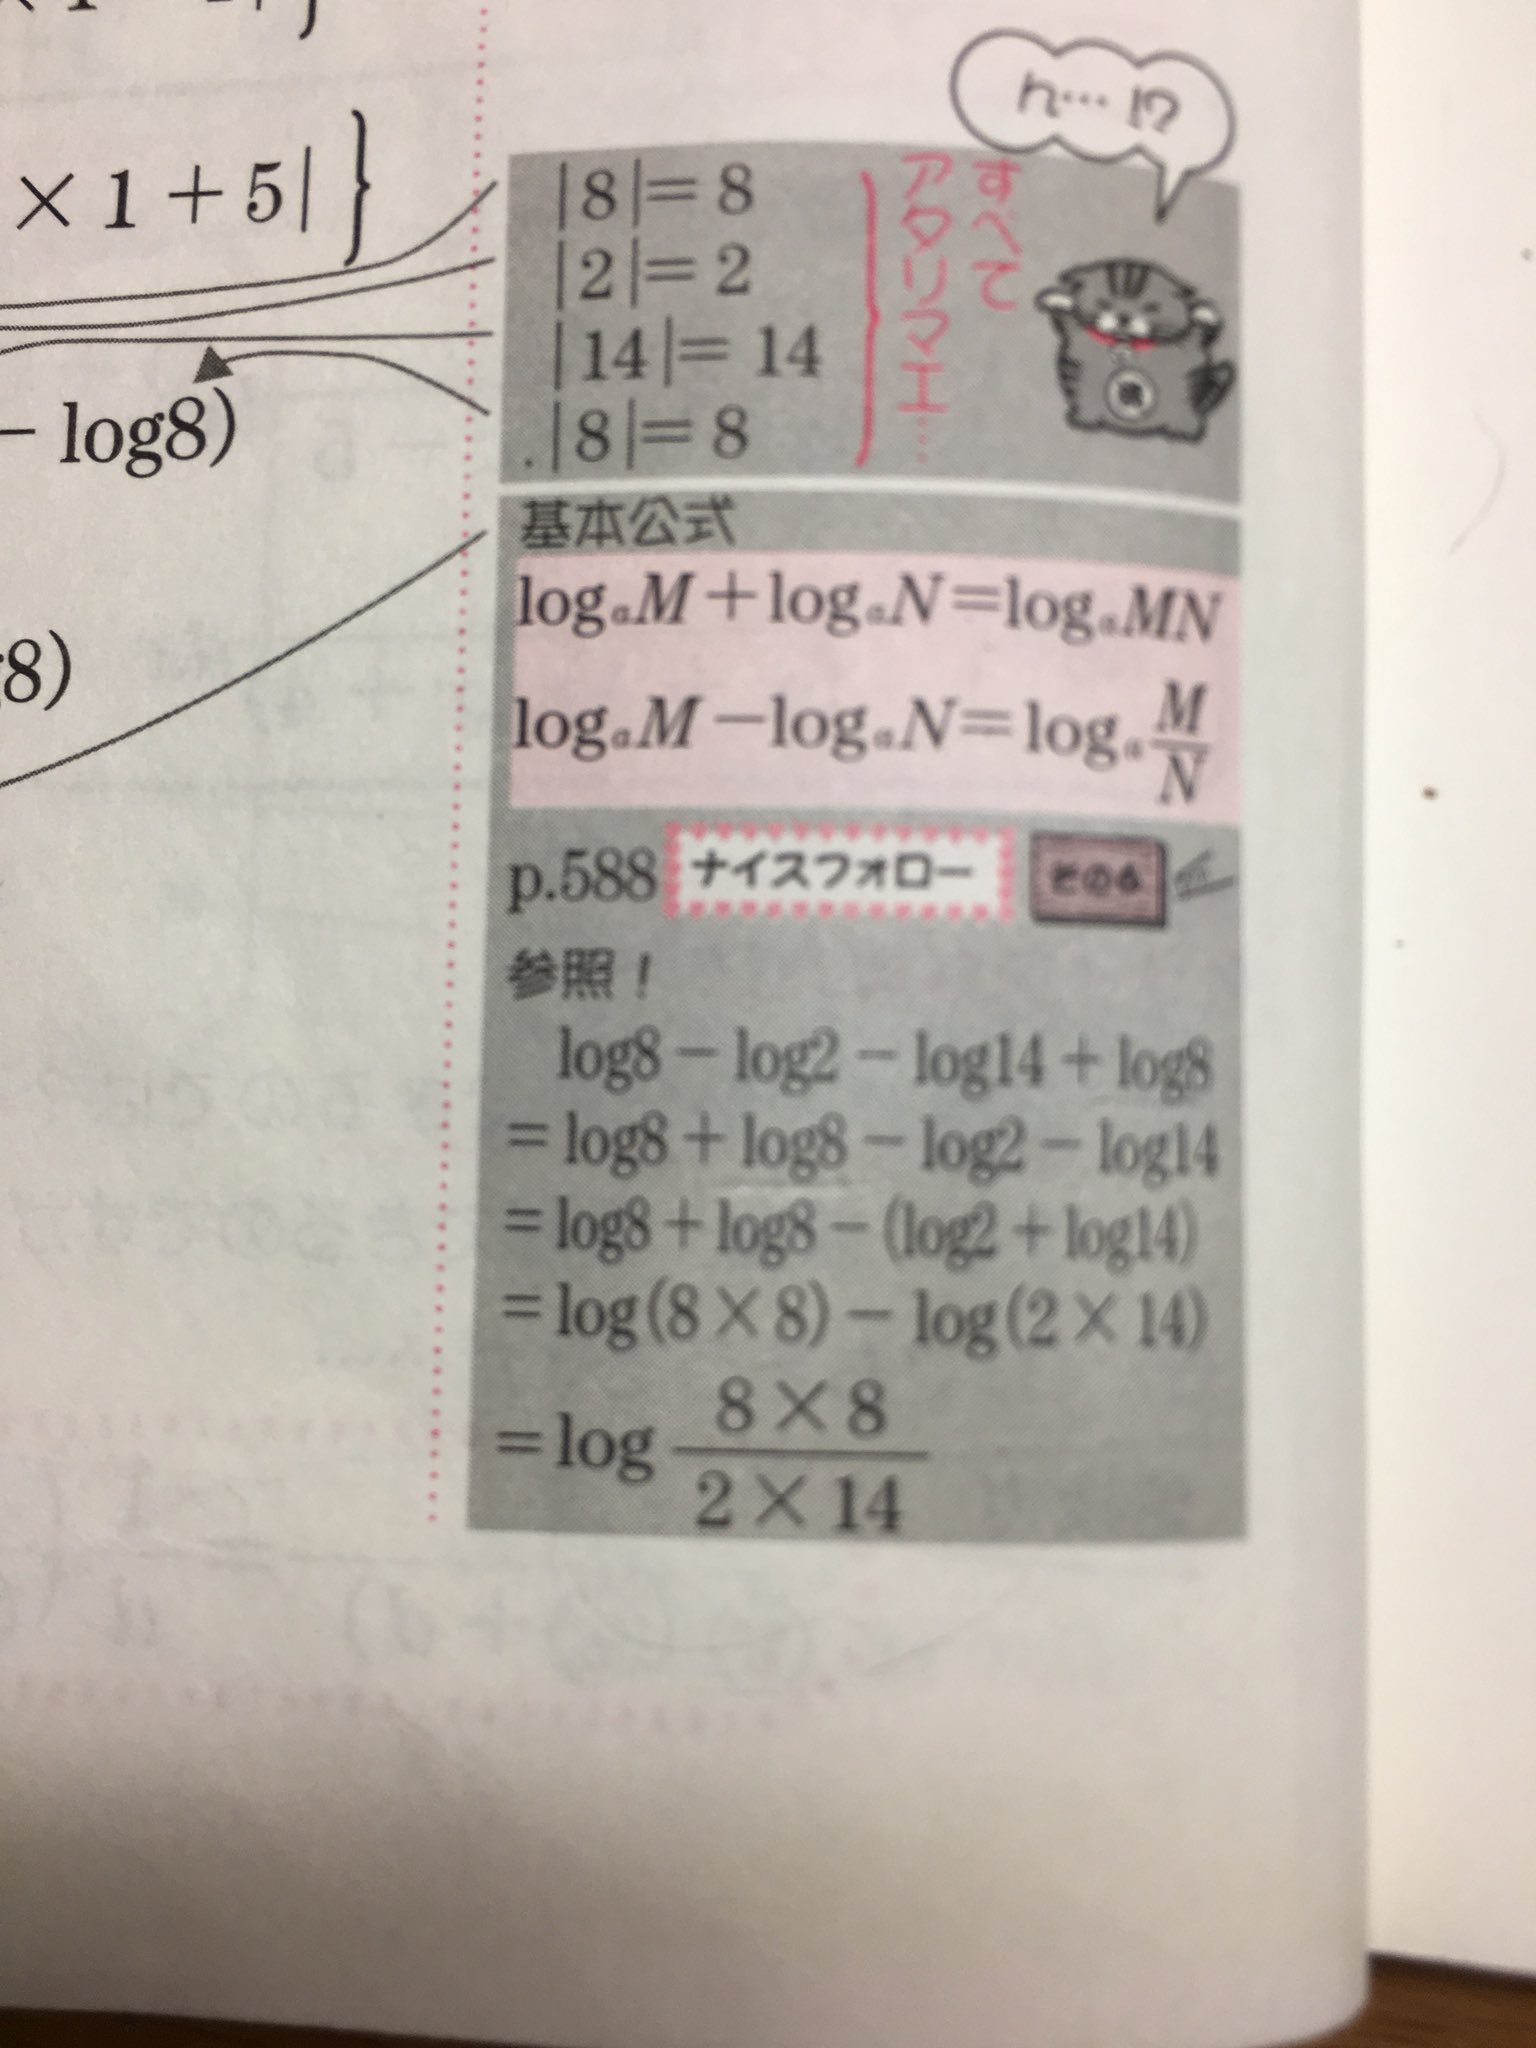 × 1 + 5| }
− log8)
g8)
ん… !?
|8| = 8
|2| = 2
|14| = 14
.|8| = 8
すべて
アタリマエ…
基本公式
logₐM + logₐN = logₐMN
logₐM − logₐN = logₐ M/N
p.588 ナイスフォロー その6
参照！
log8 − log2 − log14 + log8
= log8 + log8 − log2 − log14
= log8 + log8 − (log2 + log14)
= log(8 × 8) − log(2 × 14)
= log (8 × 8)/(2 × 14)